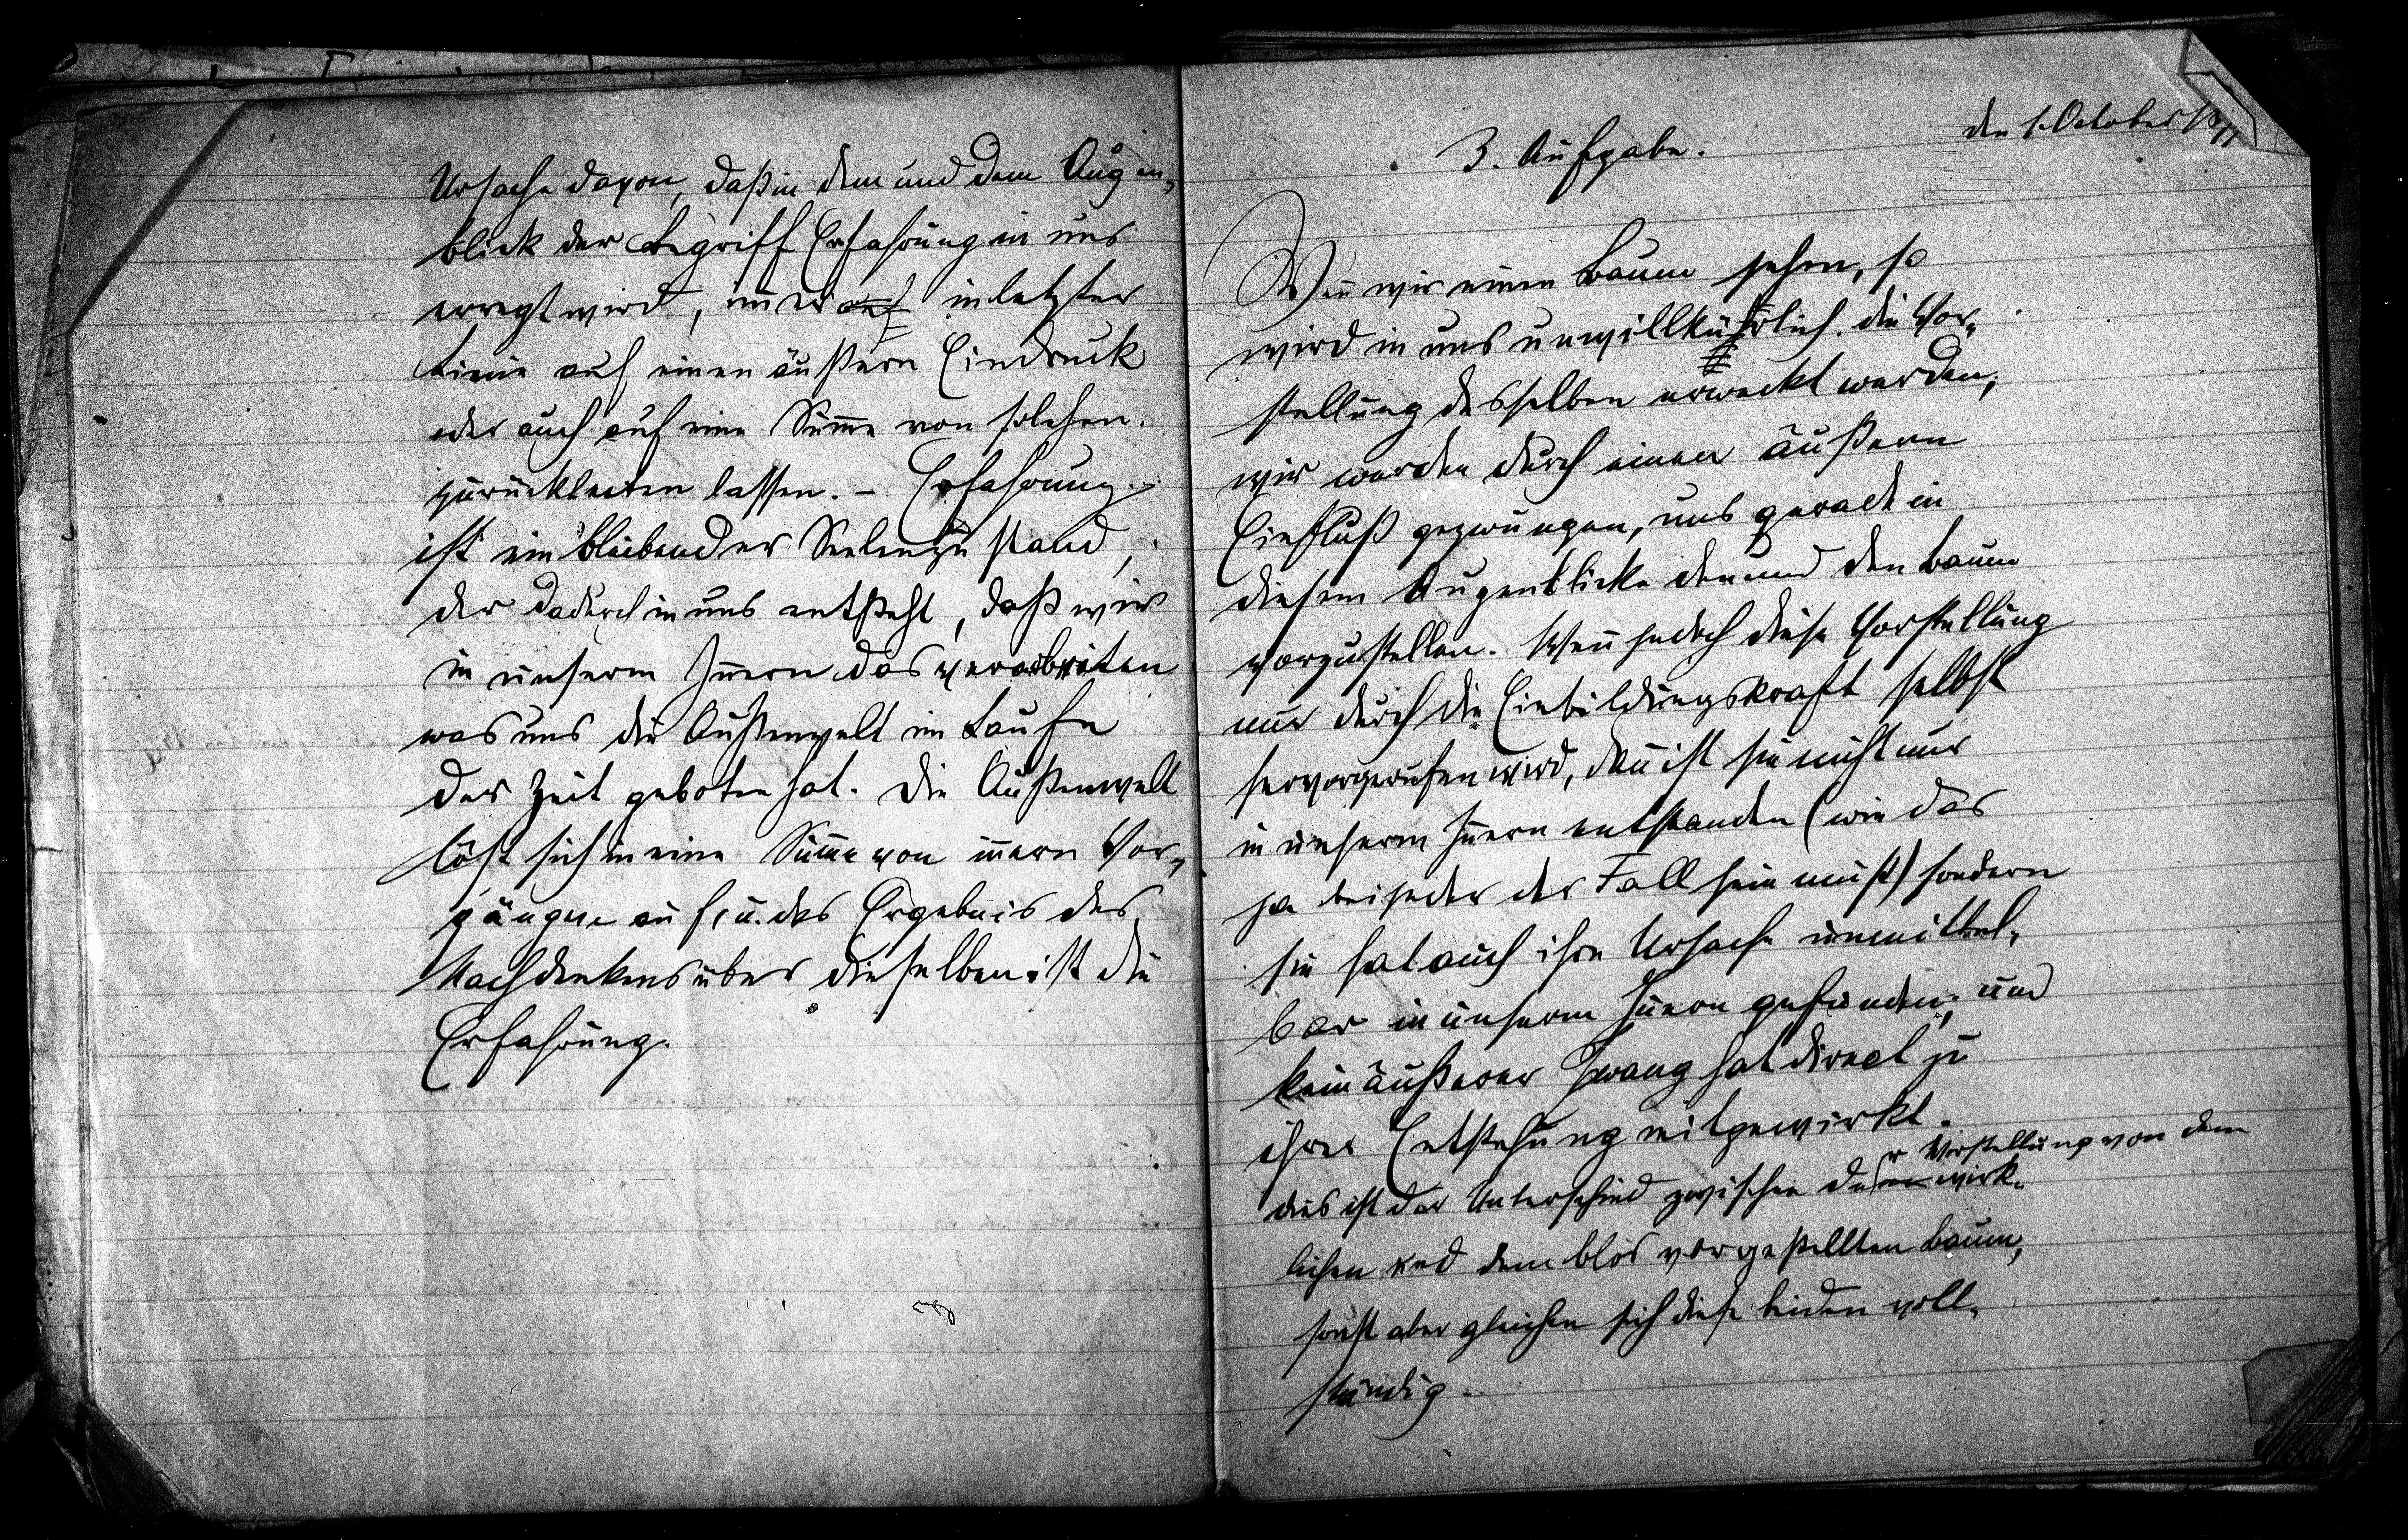 Ursache davon, daß in dem und dem Augen-
blick der Begriff Erfahrung in uns
erregt wird, im̄er auf in letzter
Linie auf einen äußern Eindruck
oder auch auf eine Sum̄e von solchen
zurückleiten lassen. – Erfahrung
ist ein bleibender Seelenzustand,
der dadurch in uns entsteht, daß wir
in unserm In̄ern das verarbeiten
was uns die Außenwelt im Laufe
der Zeit geboten hat. Die Außenwelt
löst sich in eine Sum̄e von in̄ern Vor-
gängen auf, u. das Ergebnis des
Nachdenkens über dieselben ist die
Erfahrung.
den 1. October
3. Aufgabe.
Wen̄ wir einen Baum sehen, so
wird in uns unwillkührlich die Vor-
stellung desselben erweckt werden;
wir werden durch einen äußern
Einfluß gezwungen, uns gerade in
diesem Augenblicke den und den Baum
vorzustellen. Wen̄ jedoch diese Vorstellung
nur durch die Einbildungskraft selbst
hervorgerufen wird, dan̄ ist sie nicht nur
in unserm In̄ern entstanden (wie das
ja bei jeder der Fall sein muß) sondern
sie hat auch ihre Ursache unmittel-
bar in unserm In̄ern gefunden, und
kein äußerer Zwang hat direct zu
ihrer Entstehung mitgewirkt.
r Vorstellung von dem
dies ist der Unterschied zwischen de wirk-
lichen und dem blos vorgestellten Baum,
sonst aber gleichen sich diese beiden voll-
ständig.